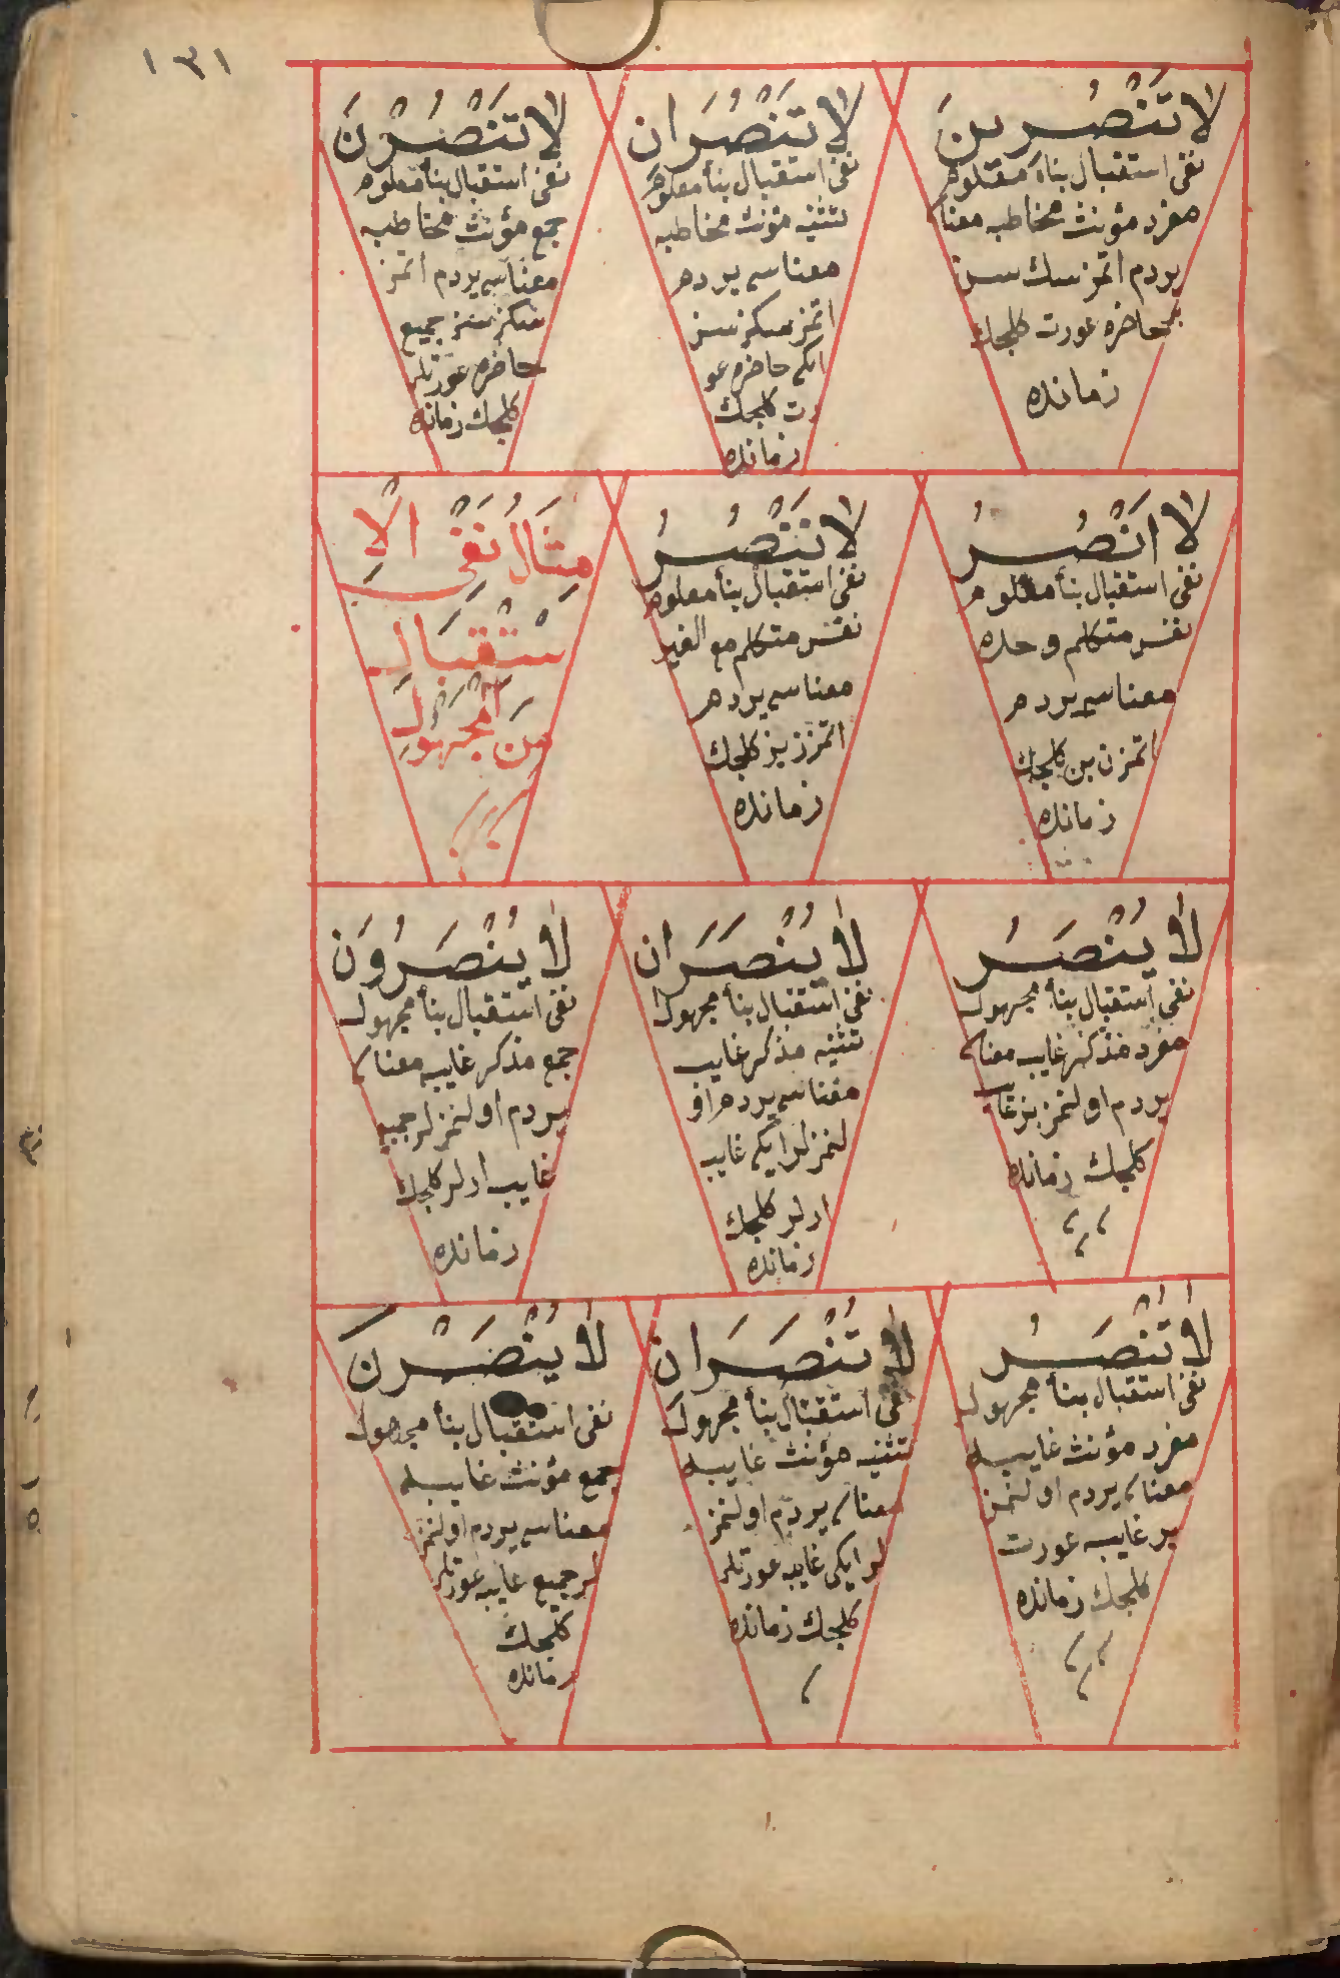 ١٣١
لَا تَنْصُرِينَ
نفی استقبال بناء معلوم
مفرد مؤنث مخاطبه معناسی
یردم اتمزسك سن
بر حاضره عورت كلجك
زمانده
لَا تَنْصُرَانِ
نفی استقبال بناء معلوم
تثنیه مؤنث مخاطبه
معناسی یردم
اتمزسكز سز
ایكی حاضره عو
رت كلجك
زمانده
لَا تَنْصُرْنَ
نفی استقبال بناء معلوم
جمع مؤنث مخاطبه
معناسی یردم اتمز
سكز سز جمیع
حاضره عورتلر
كلجك زمانده
لَا اَنْصُرُ
نفی استقبال بناء معلوم
نفس متكلم وحده
معناسی یردم
اتمزن بن كلجك
زمانده
لَا نَنْصُرُ
نفی استقبال بناء معلوم
نفس متكلم مع الغیر
معناسی یردم
اتمزز بز كلجك
زمانده
مِثَالُ نَفْیِ الْاِ
سْتِقْبَالِ
مِنَ الْمَجْهُولِ
لَا یُنْصَرُ
نفی استقبال بناء مجهول
مفرد مذكر غایب معناسی
یردم اولنمز بر غایب
كلجك زمانده
لَا یُنْصَرَانِ
نفی استقبال بناء مجهول
تثنیه مذكر غایب
معناسی یردم او
لنمزلر ایكی غایب
ارلر كلجك
زمانده
لَا یُنْصَرُونَ
نفی استقبال بناء مجهول
جمع مذكر غایب معناسی
یردم اولنمزلر جمیع
غایب ارلر كلجك
زمانده
لَا تُنْصَرُ
نفی استقبال بناء مجهول
مفرد مؤنث غایبه
معناسی یردم اولنمز
بر غایبه عورت
كلجك زمانده
لَا تُنْصَرَانِ
نفی استقبال بناء مجهول
تثنیه مؤنث غایبه
معناسی یردم اولنمز
لر ایكی غایبه عورتلر
كلجك زمانده
لَا یُنْصَرْنَ
نفی استقبال بناء مجهول
جمع مؤنث غایبه
معناسی یردم اولنمز
لر جمیع غایبه عورتلر
كلجك
زمانده